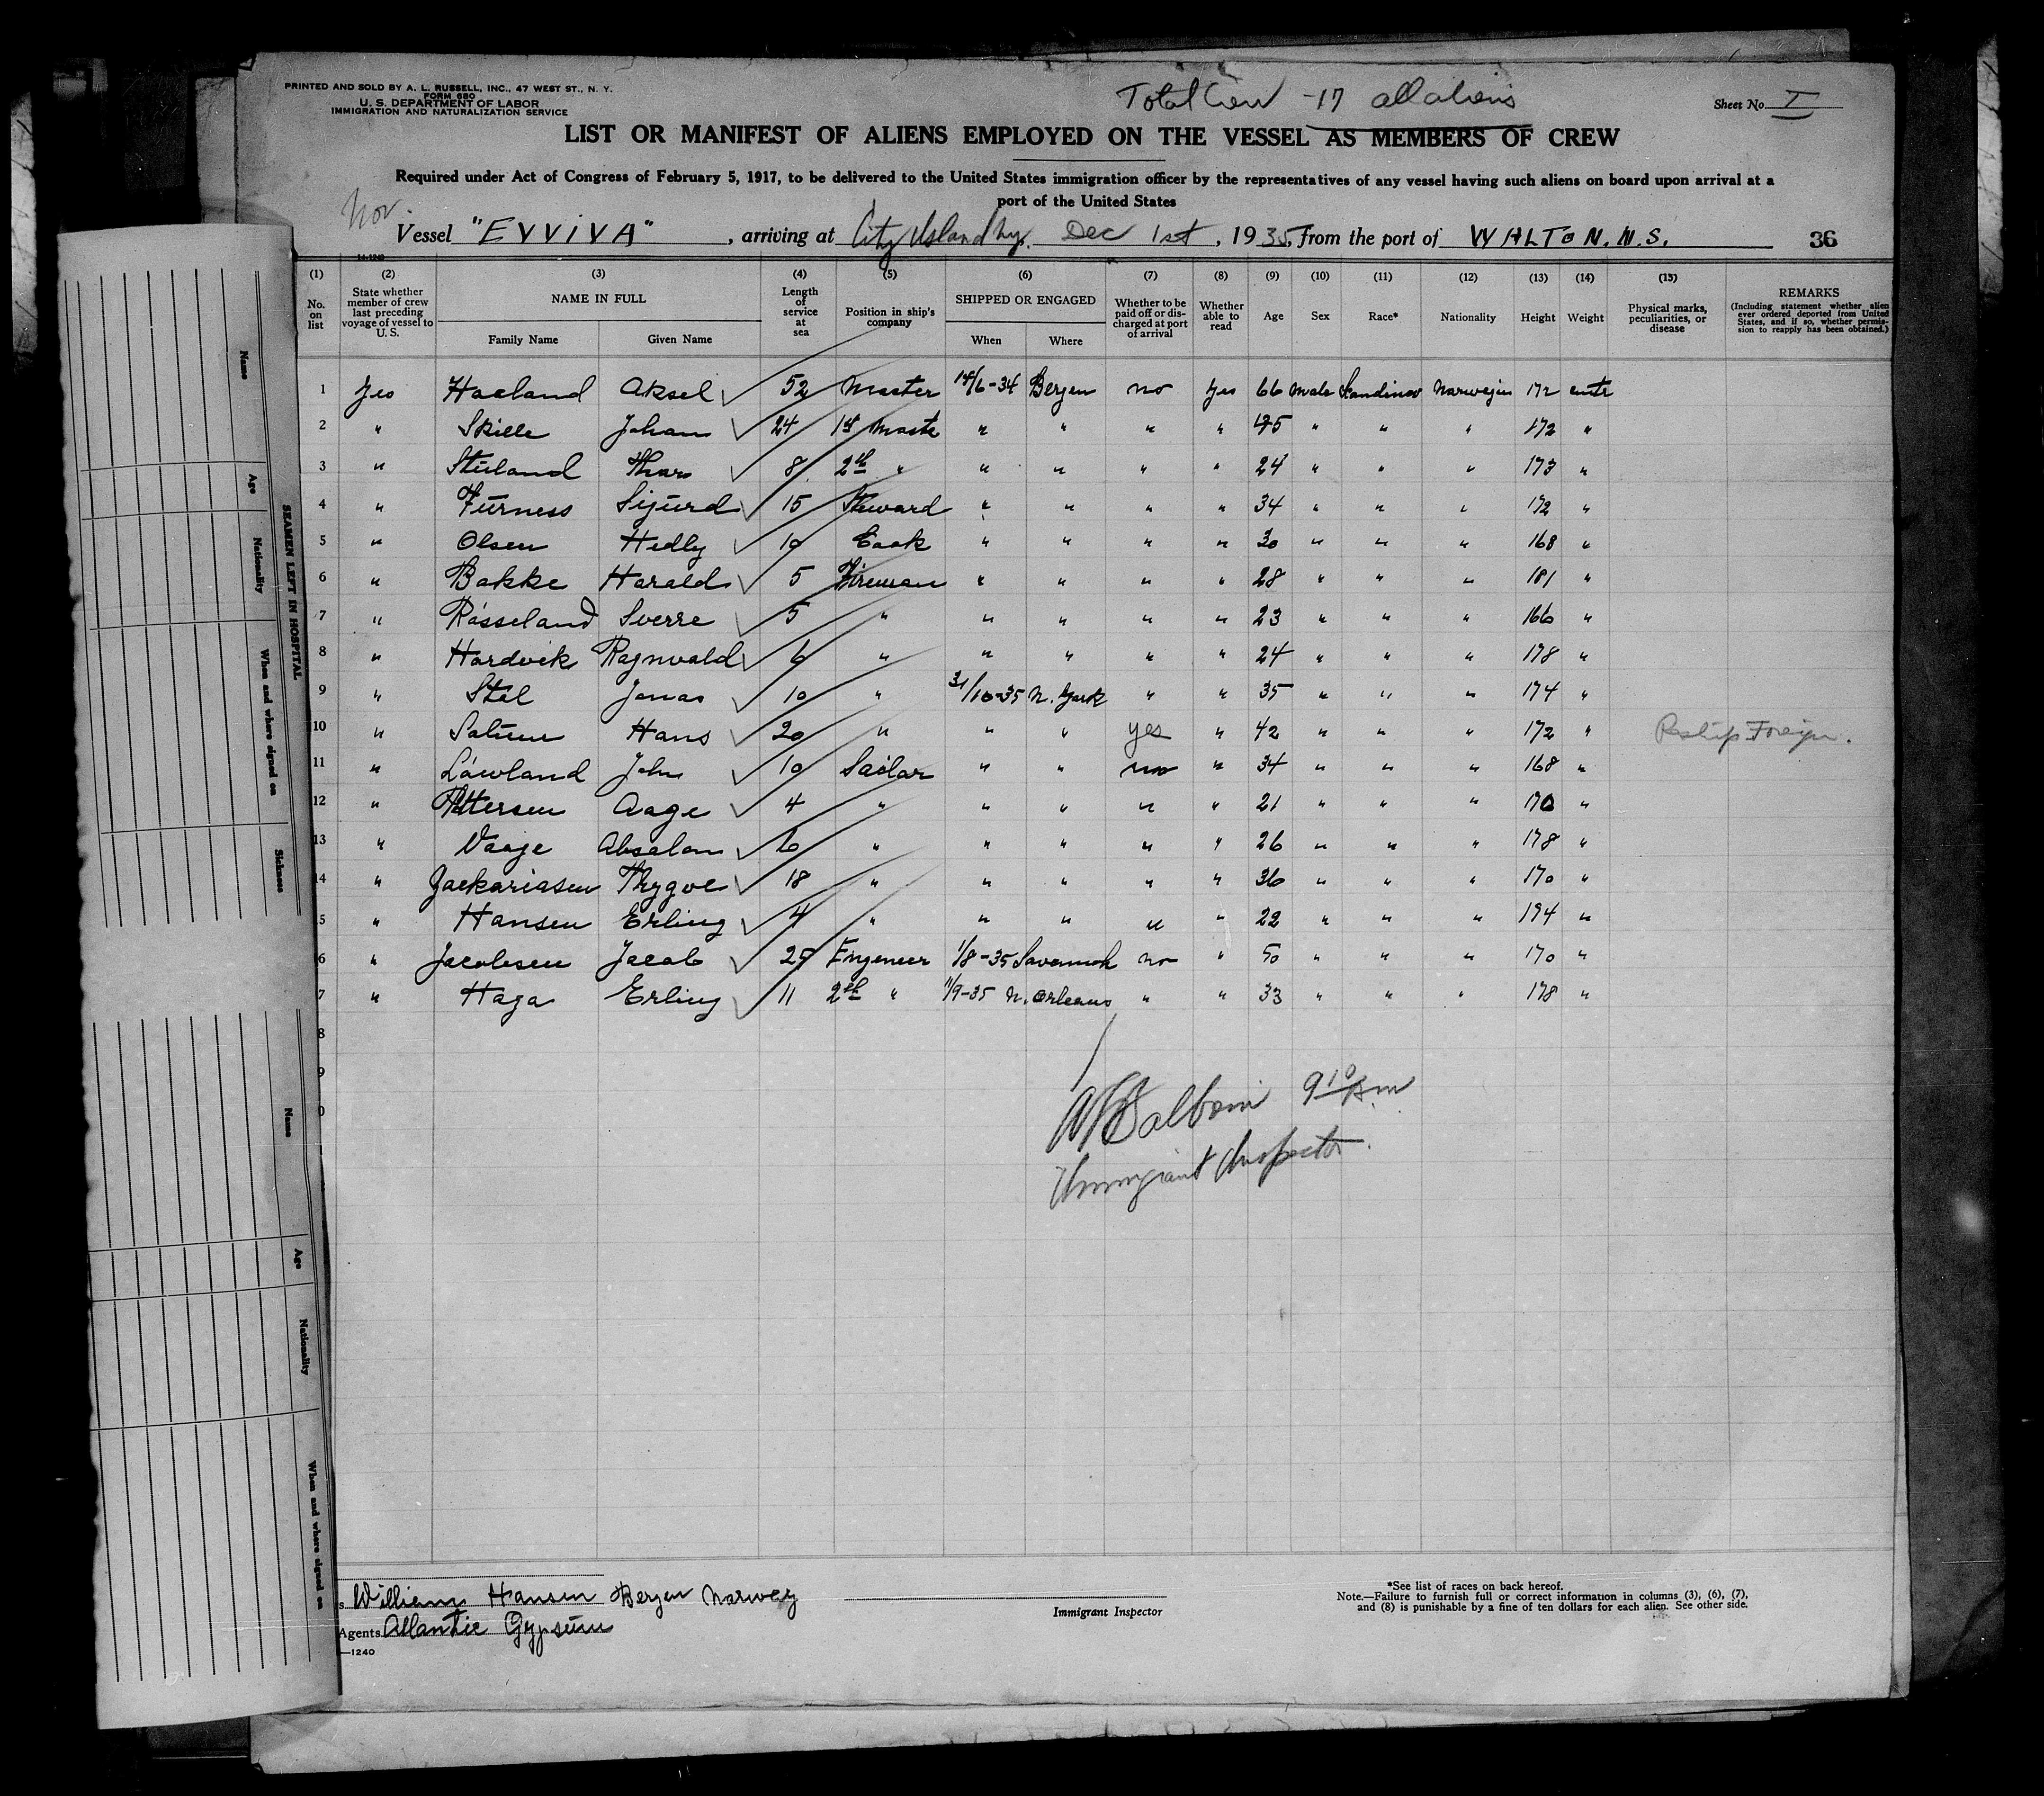 PRINTED AND SOLD BY A. L. RUSSELL, INC., 47 WEST ST., N. Y.
FORM 680
U. S. DEPARTMENT OF LABOR
IMMIGRATION AND NATURALIZATION SERVICE
Total Crew - 17 all aliens
Sheet No. I
LIST OR MANIFEST OF ALIENS EMPLOYED ON THE VESSEL AS MEMBERS OF CREW
Required under Act of Congress of February 5, 1917, to be delivered to the United States immigration officer by the representatives of any vessel having such aliens on board upon arrival at a
port of the United States
Nor.
Vessel "EVVIVA", arriving at City Island Ny. Dec 1st, 1935, from the port of WALTON. N.S. 36
14-1240
(1) (2) (3) (4) (5) (6) (7) (8) (9) (10) (11) (12) (13) (14) (15)
No. on list State whether member of crew last preceding voyage of vessel to U. S. NAME IN FULL Family Name Given Name Length of service at sea Position in ship's company SHIPPED OR ENGAGED When Where Whether to be paid off or discharged at port of arrival Whether able to read Age Sex Race* Nationality Height Weight Physical marks, peculiarities, or disease REMARKS (Including statement whether alien ever ordered deported from United States, and if so, whether permission to reapply has been obtained.)
1 Yes Haeland Aksel 52 Master 14/6-34 Bergen no Yes 66 male Scandinav Norwegin 172
2 " Skille Johan 24 1st Maste " " " " 45 " " " 172 "
3 " Stuland Thor 8 2nd " " " " " 24 " " " 173 "
4 " Furness Sigurd 15 Steward " " " " 34 " " " 172 "
5 " Olsen Hedly 10 Cook " " " " 30 " " " 168 "
6 " Bakke Harald 5 Fireman " " " " 28 " " " 181 "
7 " Rosseland Sverre 5 " " " " " 23 " " " 166 "
8 " Hardvik Ragnvald 6 " " " " " 24 " " " 178 "
9 " Stël Jonas 10 " 31/10-35 N. York " " 35 " " " 174 "
10 " Solum Hans 20 " " " yes " 42 " " " 172 " Reship Foreign.
11 " Löwland John 10 Sailor " " no " 34 " " " 168 "
12 " Pettersen Aage 4 " " " " " 21 " " " 170 "
13 " Vaage Absalon 6 " " " " " 26 " " " 178 "
14 " Zackariasen Thygve 18 " " " " " 36 " " " 170 "
5 " Hansen Erling 4 " " " " " 22 " " " 174 "
6 " Jacobsen Jacob 25 Engeneer 1/8-35 Savannah no " 50 " " " 170 "
7 " Haga Erling 11 2nd " 11/9-35 N. Orleans " " 33 " " " 178 "
8
9
0
9 10 A.m
Immigrant Inspector.
William Hansen Bergen Norway
Agents Atlantic Gypsum
—1240
Immigrant Inspector
*See list of races on back hereof.
Note.—Failure to furnish full or correct information in columns (3), (6), (7),
and (8) is punishable by a fine of ten dollars for each alien. See other side.
SEAMEN LEFT IN HOSPITAL
Name
Age
Nationality
When and where signed on
Sickness
Name
Age
Nationality
When and where signed on